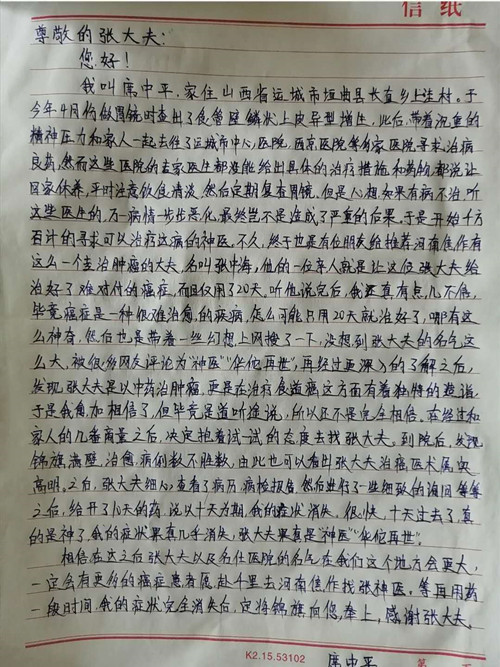 信 纸
尊敬的张大夫:
您好!
我叫席中平,家住山西省运城市垣曲县长直乡上洼村。于
今年4月份做胃镜时查出了食管壁鳞状上皮异型增生,此后,带着沉重的
精神压力和家人一起去往了运城市中心医院,西京医院等多家医院寻求治病
良药,然而这些医院的专家医生都没能给出具体的治疗措施和药物,都说让
回家休养,平时注意饮食清淡,然后定期复查胃镜,但是心想,如果有病不治,听
这些医生的,万一病情一步步恶化,最终岂不是造成了严重的后果。于是开始千方
百计的寻求可以治疗这病的神医。不久,终于也是有位朋友给推荐河南焦作有
这么一个主治肿瘤的大夫,名叫张中海,他的一位亲人就是让这位张大夫给
治好了难对付的癌症,而且仅用了20天。听他说完后,我还真有点儿不信,
毕竟癌症是一种很难治愈的疾病,怎么可能只用20天就治好了,哪有这
么神奇,然后也是带着一丝幻想上网搜了一下,没想到张大夫的名气这
么大,被很多网友评论为"神医""华佗再世",再经过更深入的了解之后,
发现,张大夫是以中药治肿瘤,更是在治疗食道癌这方面有着独特的造诣,
于是我更加相信了,但毕竟是道听途说,所以还不是完全相信。在经过和
家人的几番商量之后,决定抱着试一试的态度去找张大夫。到院后,发现
锦旗满壁,治愈病例数不胜数,由此也可以看出张大夫治癌医术属实
高明。之后,张大夫细心查看了病历,病检报告,然后进行了一些细致的询问等等
之后,给开了小大的药,说以十天为期,我的症状消失。很快,十天过去了,真
的是神了,我的症状果真几乎消失,张大夫果真是"神医""华佗再世"。
相信在这之后张大夫以及名仕医院的名气在我们这个地方会更大,
一定会有更多的癌症患者愿赴千里去河南焦作找张神医。等再用药
一段时间,我的症状完全消失后,定将锦旗向您奉上,感谢张大夫。
K2.15.53102
席中平